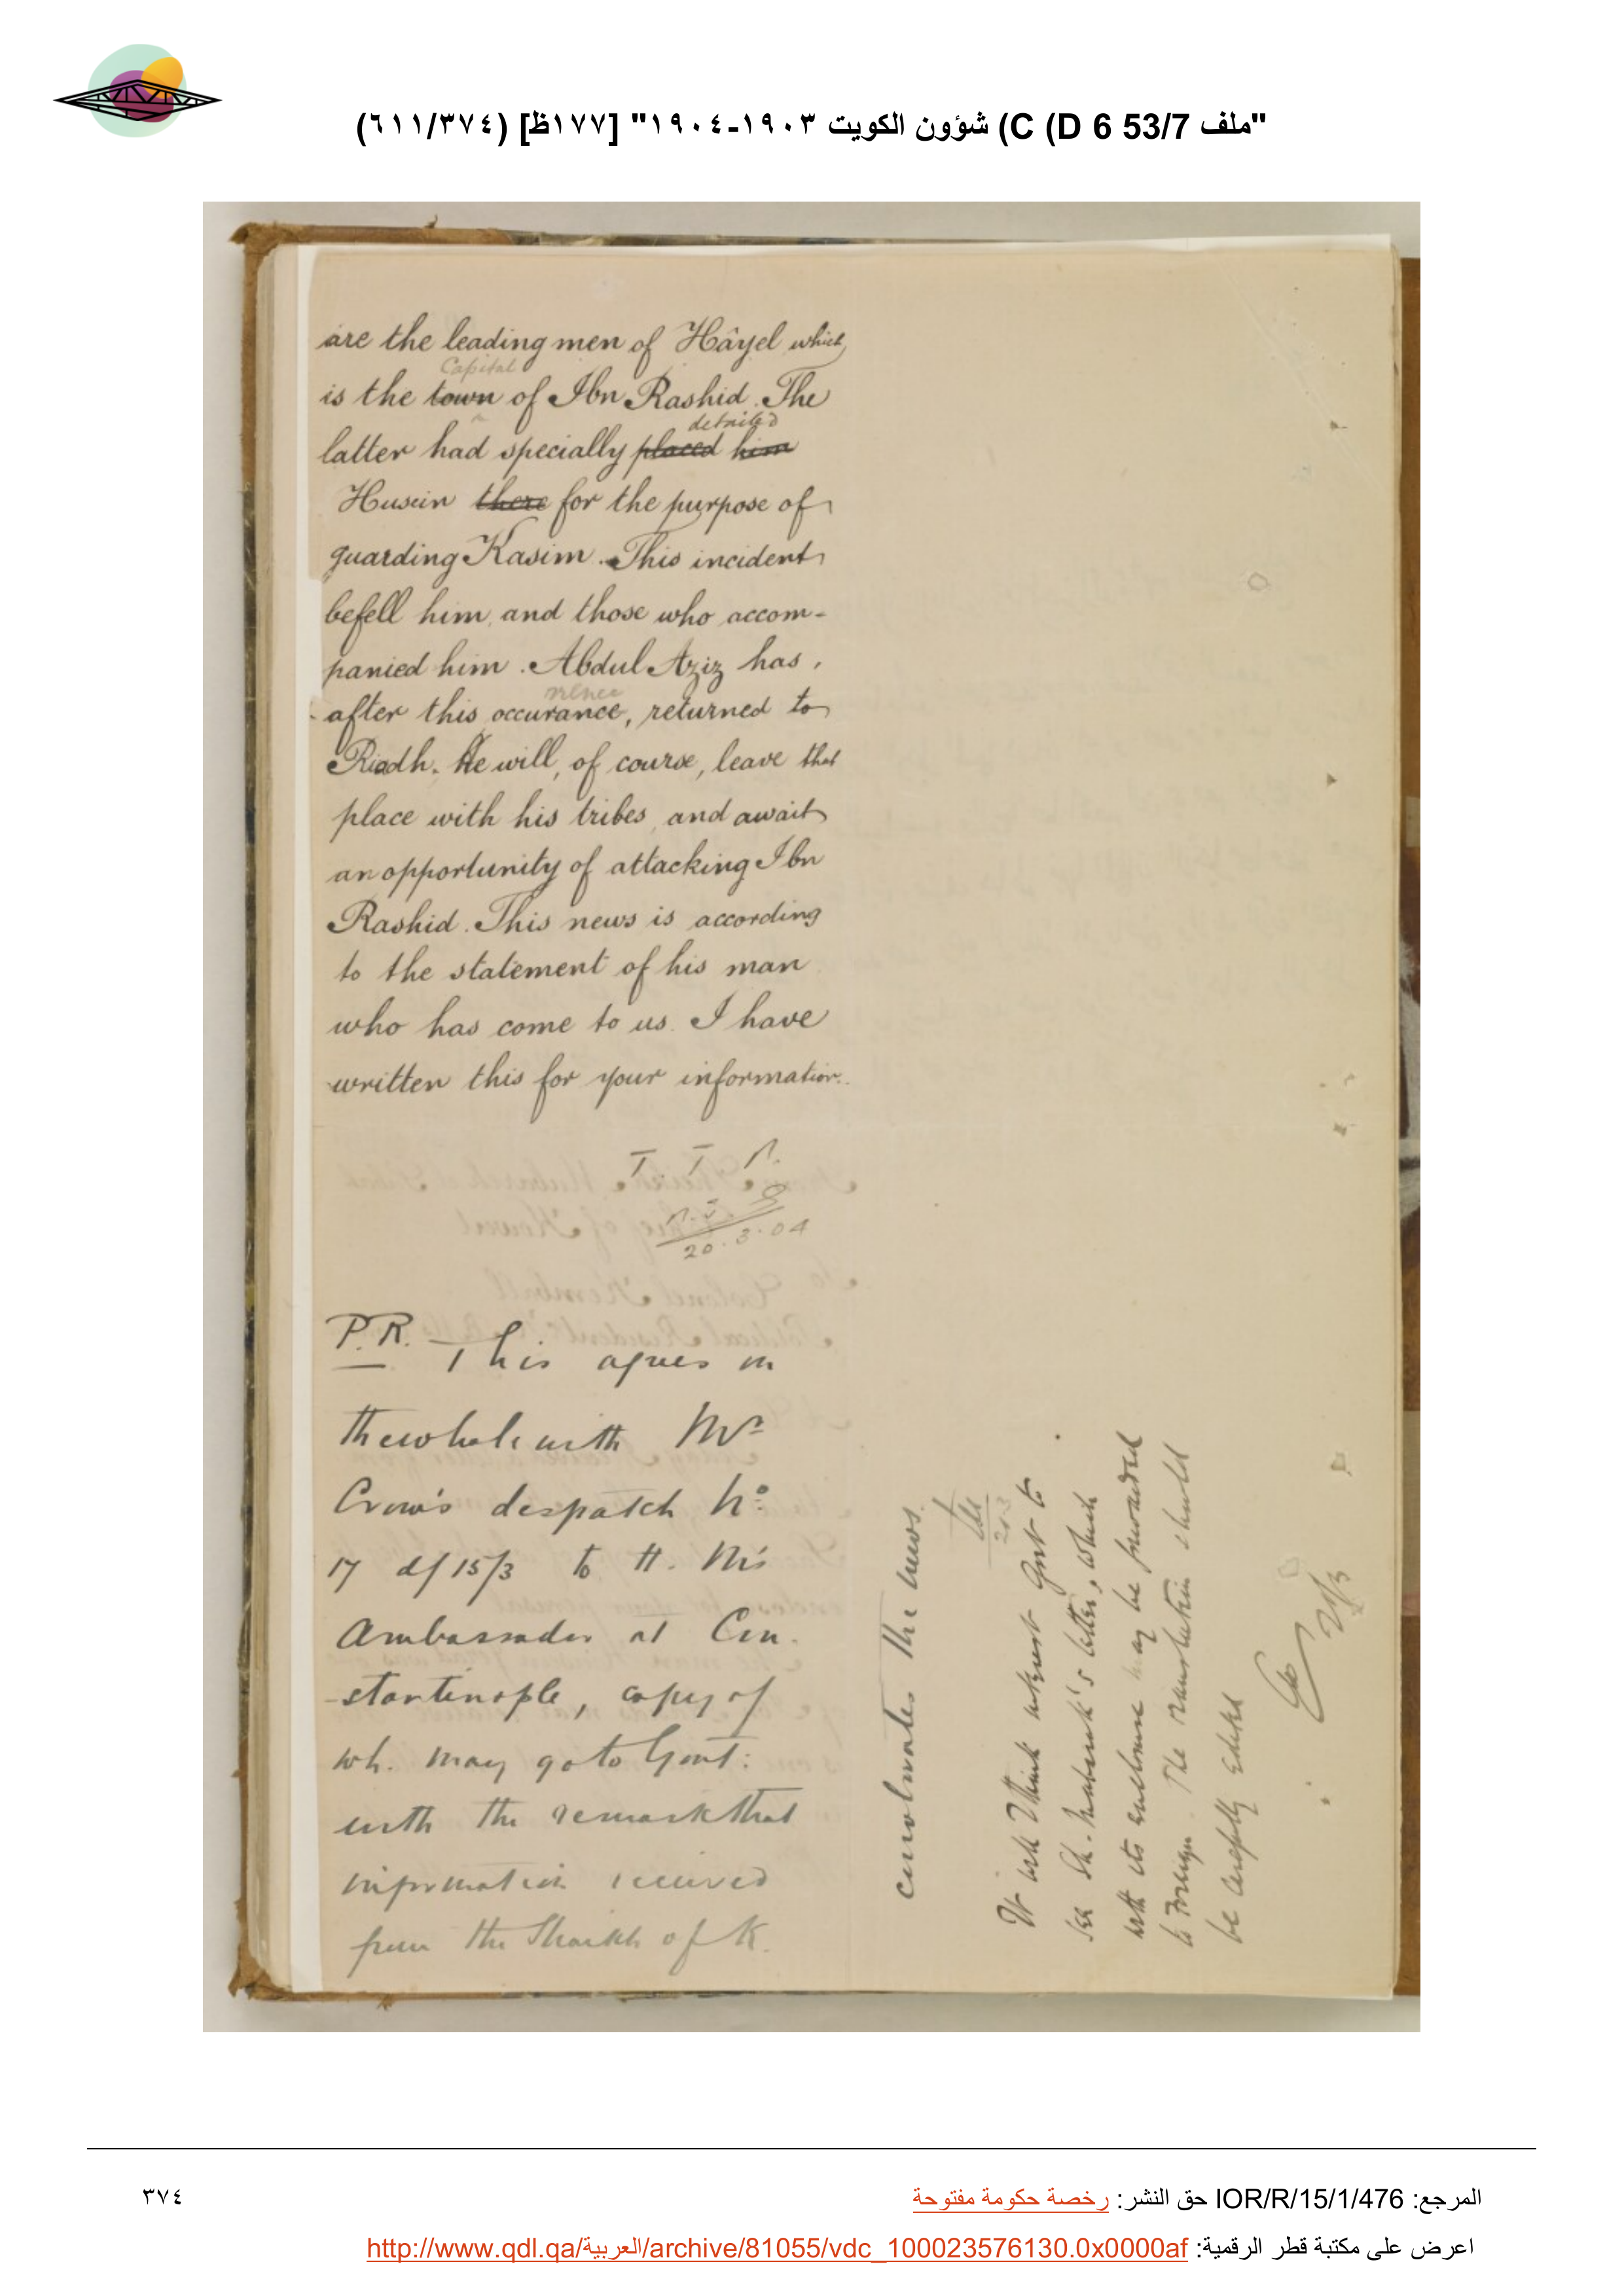 "ملف 53/7 C (D 6) شؤون الكويت ١٩٠٣-١٩٠٤" [١٧٧ظ] (٦١١/٣٧٤)
are the leading men of Hâyel which
Capital
is the town of Ibn Rashid. The
detailed
latter had specially placed him
Husein there for the purpose of
guarding Kasim. This incident
befell him, and those who accom-
panied him. Abdul Aziz has,
rrence
after this occurance, returned to
Riadh. He will, of course, leave that
place with his tribes, and await
an opportunity of attacking Ibn
Rashid. This news is according
to the statement of his man
who has come to us. I have
written this for your information.
20.3.04
P.R. This agrees in
the whole with Mr
Crow's despatch No
17 d/15/3 to H. M's
Ambassador at Con-
-stantinople, copy of
wh. may go to Govt:
with the remark that
information received
from the Shaikh of K.
the news.
It will I think interest Govt to
see Sh. Mubarak's letter, which
with its enclosure may be forwarded
to Foreign. The translation should
be carefully edited
21/3
المرجع: IOR/R/15/1/476 حق النشر: رخصة حكومة مفتوحة
٣٧٤
اعرض على مكتبة قطر الرقمية: http://www.qdl.qa/العربية/archive/81055/vdc_100023576130.0x0000af